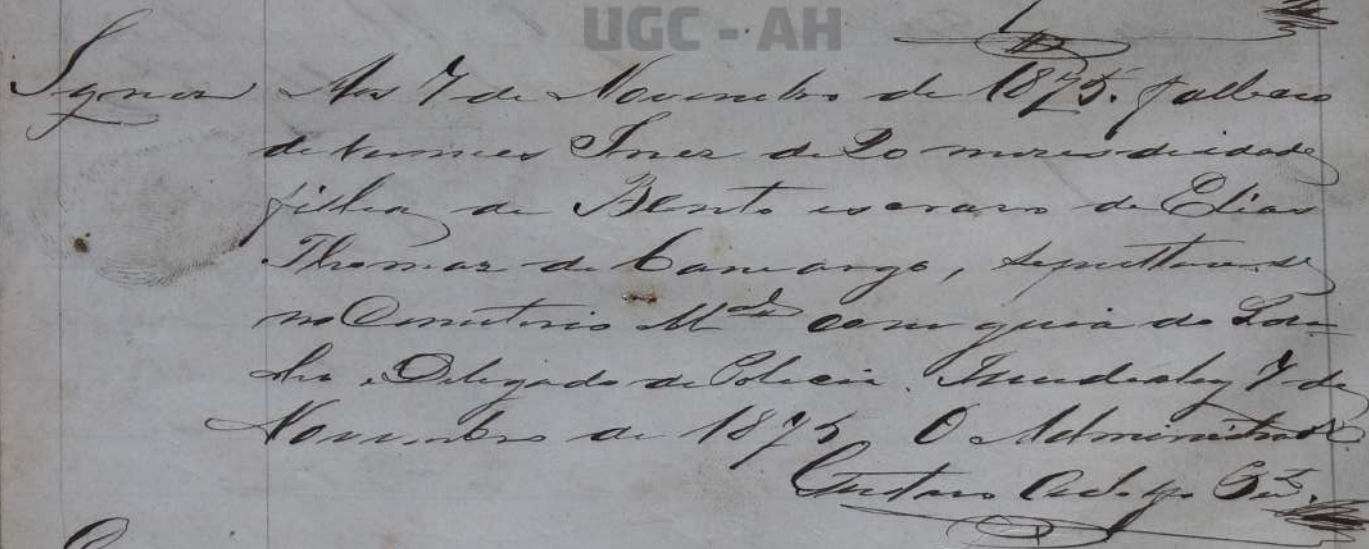 UGC - AH
Ignez Aos 7 de Novembro de 1875. falleceo
de vermes Inez de 20 mezes de idade
filha de Bento escravo de Elias
Thomaz de Camargo, sepultou-se
no Cemiterio M.al com guia do
Delegado de Policia. 7 de
Novembro de 1875 O Administrador
Gustavo Adolpho